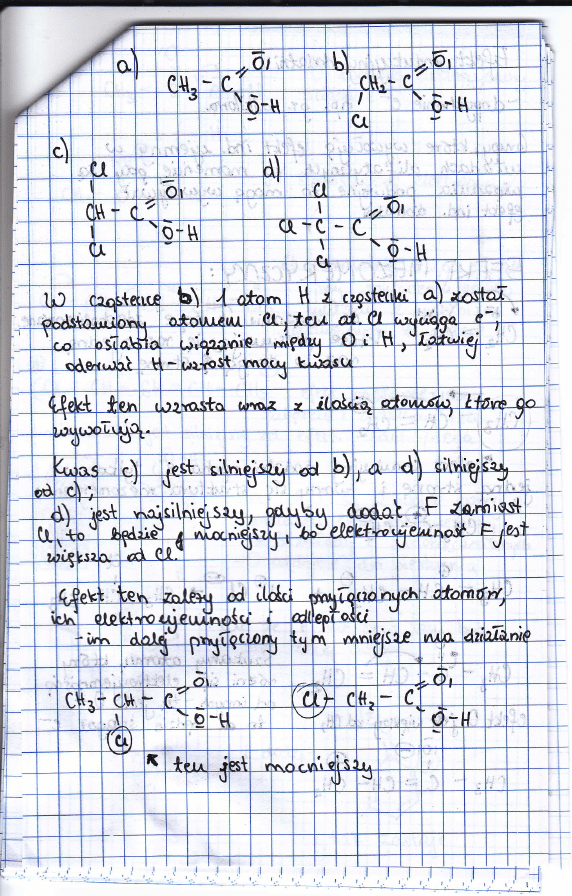 a) CH3 – C = O – H
b) CH2 – C = O – H
Cl
c) Cl
CH – C = O – H
Cl
d) Cl
Cl – C – C = O – H
Cl
W cząsteczce b) 1 atom H z cząsteczki a) został
podstawiony atomem Cl, ten at. Cl wyciąga e⁻,
co osłabia wiązanie między O i H, łatwiej
oderwać H – wzrost mocy kwasu
Efekt ten wzrasta wraz z ilością atomów, które go
wywołują.
Kwas c) jest silniejszy od b), a d) silniejszy
od c);
d) jest najsilniejszy, gdyby dodać F zamiast
Cl, to będzie mocniejszy, bo elektroujemność F jest
większa od Cl.
Efekt ten zależy od ilości przyłączonych atomów,
ich elektroujemności i odległości
– im dalej przyłączony tym mniejsze ma działanie
CH3 – CH – C = O – H
Cl
Cl – CH2 – C = O – H
ten jest mocniejszy